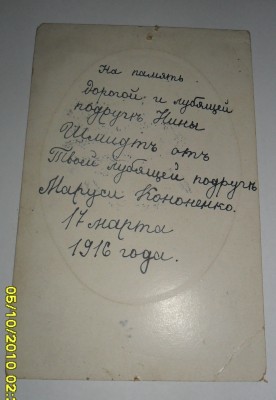 На память
дорогой и лубящей
подругѣ Нины
Шмидтъ отъ
Твоей лубящей подругѣ
Маруси Кононенко.
17 марта
1916 года.
05/10/2010 02: